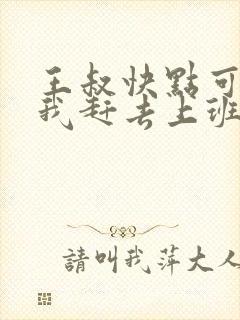 王叔快點可
我赶去上班
請叫我萍大人